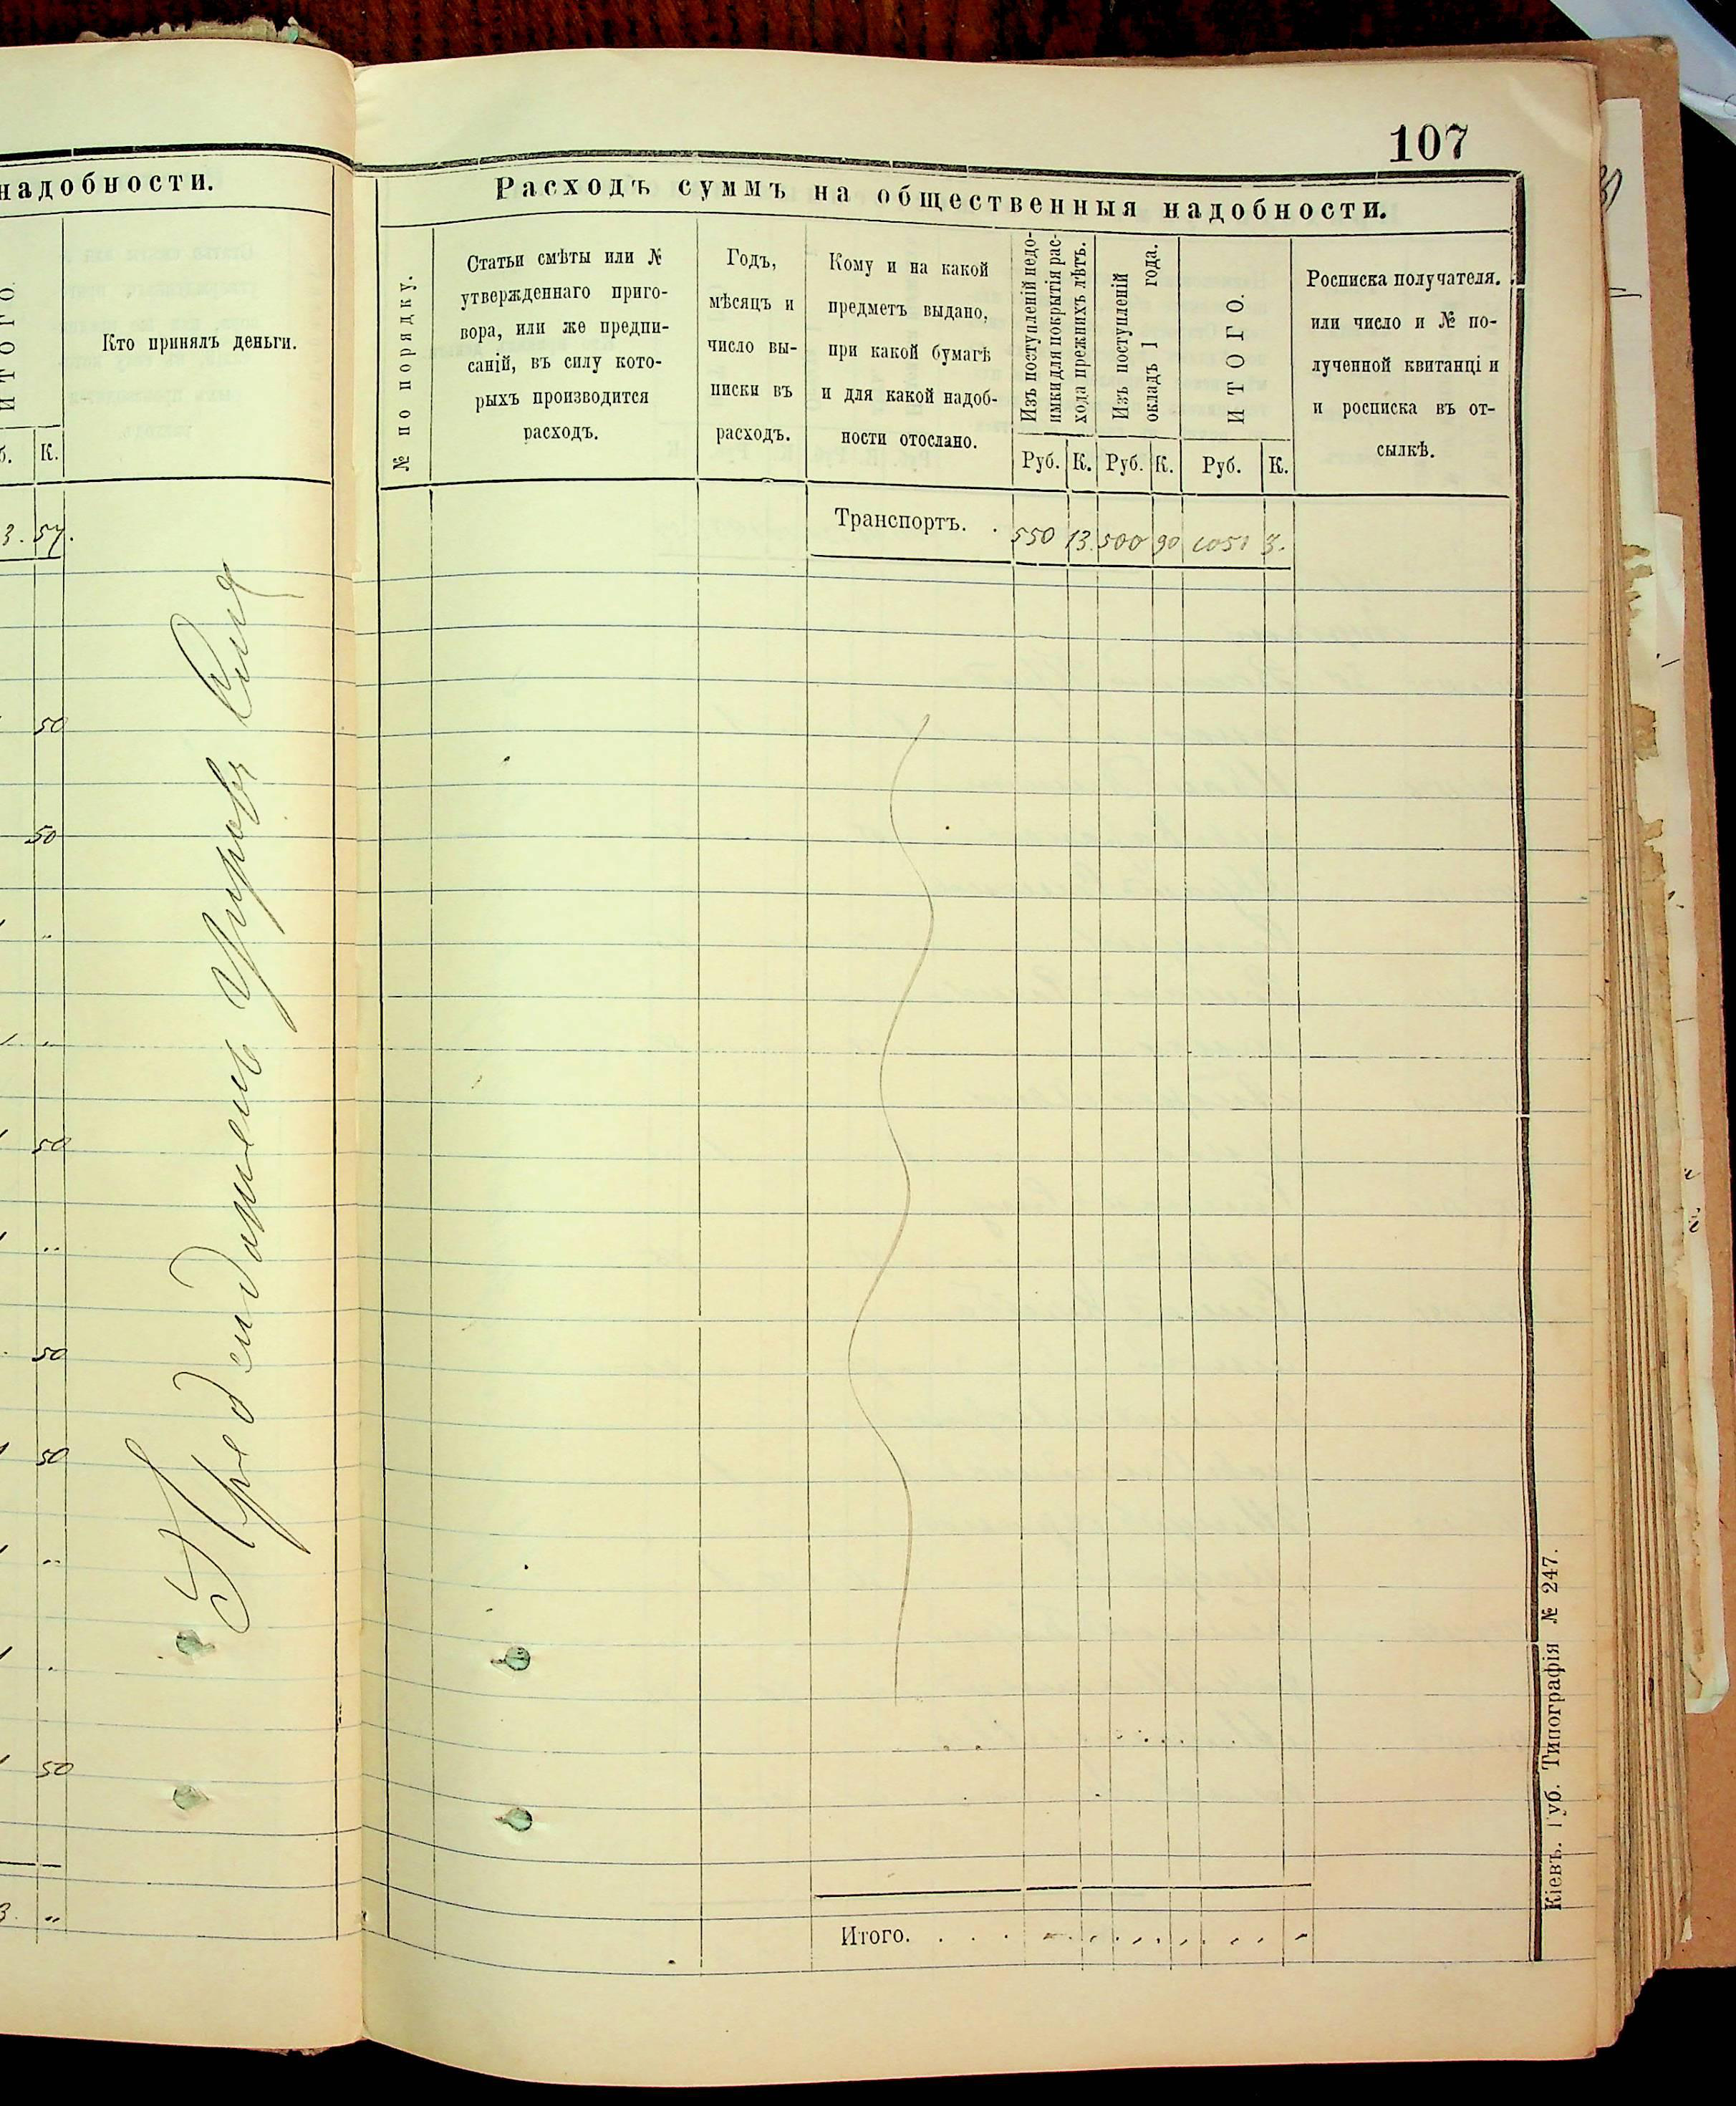 надобности.
ИТОГО.
Кто принялъ деньги.
К.
3. 57.
50
50
50
50
50
50
3. "
107
Расходъ суммъ на общественныя надобности.
№ по порядку.
Статьи смѣты или №
утвержденнаго приго-
вора, или же предпи-
саній, въ силу кото-
рыхъ производится
расходъ.
Годъ,
мѣсяцъ и
число вы-
писки въ
расходъ.
Кому и на какой
предметъ выдано,
при какой бумагѣ
и для какой надоб-
ности отослано.
Изъ поступленій недо-
имки для покрытія рас-
хода прежнихъ лѣтъ.
Изъ поступленій
окладъ 1 года.
ИТОГО.
Росписка получателя.
или число и № по-
лученной квитанці и
и росписка въ от-
сылкѣ.
Руб. К. Руб. К. Руб. К.
Транспортъ. . 550 13. 500 90 1051 3.
Итого. . . .
Кіевъ. Губ. Типографія № 247.